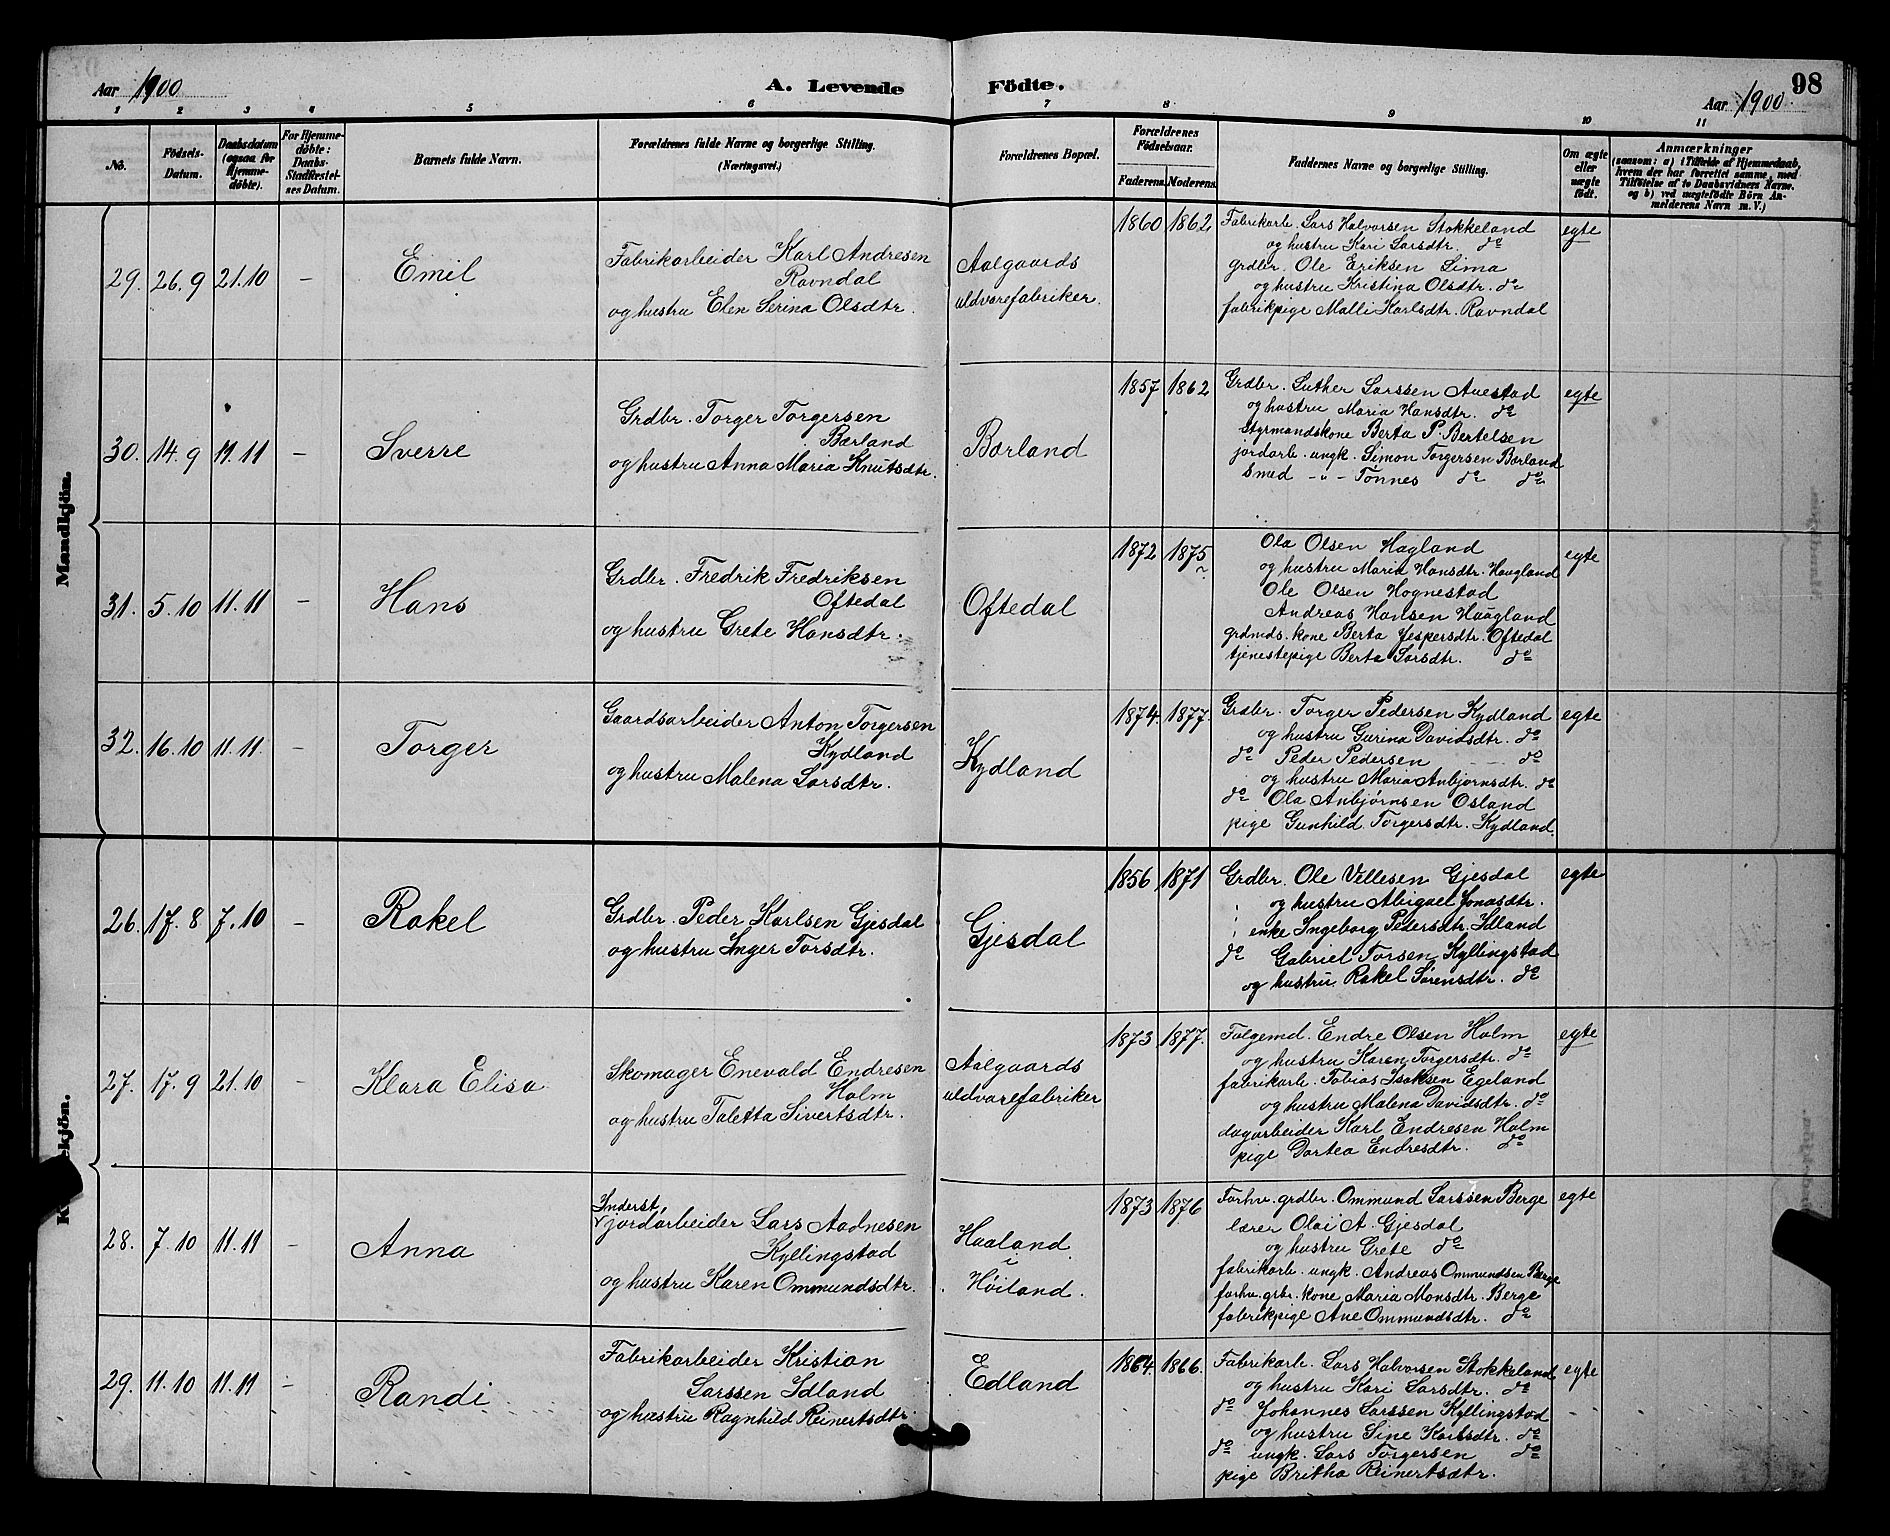 98
Aar 1900
A. Levende Födte.
Aar 1900.
1 2 3 4 5 6 7 8 9 10 11
No.
Födsels-Datum.
Daabsdatum (ogsaa for Hjemme-döbte).
For Hjemme-döbte: Daabs-Stadfæstel-ses Datum.
Barnets fulde Navn.
Forældrenes fulde Navne og borgerlige Stilling.
(Næringsvei.)
Forældrenes Bopæl.
Forældrenes Födselsaar.
Faderens. Moderens.
Faddernes Navne og borgerlige Stilling.
Om ægte eller uægte födt.
Anmærkninger
(saasom: a) i Tilfælde af Hjemmedaab, hvem der har forrettet samme, med Tilföielse af to Daabsvidners Navne, og b) ved uægtefödte Börn An-melderens Navn m. V.)
Mandkjön.
29. 26.9 21.10 – Emil
Fabrikarbeider Karl Andresen
Ravndal
og hustru Elen Serina Olsdtr.
Aalgaards
uldvarefabriker.
1860 1862
Fabrikarb. Lars Halvorsen Stokkeland
og hustru Kari Larsdtr. do
grdbr. Ole Eriksen Lima
og hustru Kristina Olsdtr. do
fabrikpige Malli Karlsdtr. Ravndal
egte
30. 14.9 11.11 – Sverre
Grdbr. Torger Torgersen
Bærland
og hustru Anna Maria Knutsdtr.
Bærland
1857 1862
Grdbr. Luther Larssen Auestad
og hustru Maria Hansdtr. do
Styrmandskone Berta P. Bertelsen
jordarb. ungk. Simon Torgersen Bærland
Smed -"- Tönnes do do
egte
31. 5.10 11.11 – Hans
Grdbr. Fredrik Fredriksen
Oftedal
og hustru Grete Hansdtr.
Oftedal
1872 1875
Ola Olsen Hagland
og hustru Maria Hansdtr. Haugland
Ole Olsen Hognestad
Andreas Hansen Haagland
grdmds. kone Berta Jespersdtr. Oftedal
tjenestepige Berta Larsdtr. do
egte
32. 16.10 11.11 – Torger
Gaardsarbeider Anton Torgersen
Kydland
og hustru Malena Larsdtr.
Kydland
1874. 1877.
Grdbr. Torger Pedersen Kydland
og hustru Gurina Davidsdtr. do
do Peder Pedersen do
og hustru Maria Anbjørnsdtr. do
do Ola Anbjørnsen Osland
pige Gunhild Torgersdtr. Kydland.
egte
26. 17.8 7.10 – Rakel
Grdbr. Peder Karlsen Gjesdal
og hustru Inger Torsdtr.
Gjesdal
1856 1871
Grdbr. Ole Villesen Gjesdal
og hustru Abigael Jonasdtr.
enke Ingeborg Petersdtr. Idland
do Gabriel Torsen Kyllingstad
og hustru Rakel Sörensdtr. do
egte
27. 17.9 21.10 – Klara Elisa
Skomager Enevald Endresen
Holm
og hustru Taletta Sivertsdtr.
Aalgaards
uldvarefabriker
1873 1877.
Folgemd. Endre Olsen Holm
og hustru Karen Torgersdtr. do
fabrikarb. Tobias Isaksen Egeland
og hustru Malena Davidsdtr. do
dagarbeider Karl Endresen Holm
pige Dortea Endresdtr. do
egte
28. 7.10 11.11 – Anna
Inderst,
jordarbeider Lars Aadnesen
Kyllingstad
og hustru Karen Ommundsdtr.
Haaland
i
Høiland.
1873 1876
Forhv. grdbr. Ommund Larssen Berge
lærer Olai A. Gjesdal
og hustru Grete do
fabrikarb. ungk. Andreas Ommundsen Berge
forhv. grbr. kone Maria Monsdtr. Berge
fabrikpige Ane Ommundsdtr. do
egte
29. 11.10 11.11 – Randi
Fabrikarbeider Kristian
Larssen Idland
og hustru Ragnhild Reinertsdtr.
Edland
1864. 1866.
Fabrikarb. Lars Halvorsen Stokkeland
og hustru Kari Larsdtr. do
do Johannes Larssen Kyllingstad
og hustru Sine Karlsdtr. do
do ungk. Lars Torgersen do
pige Britha Reinertsdtr.
egte